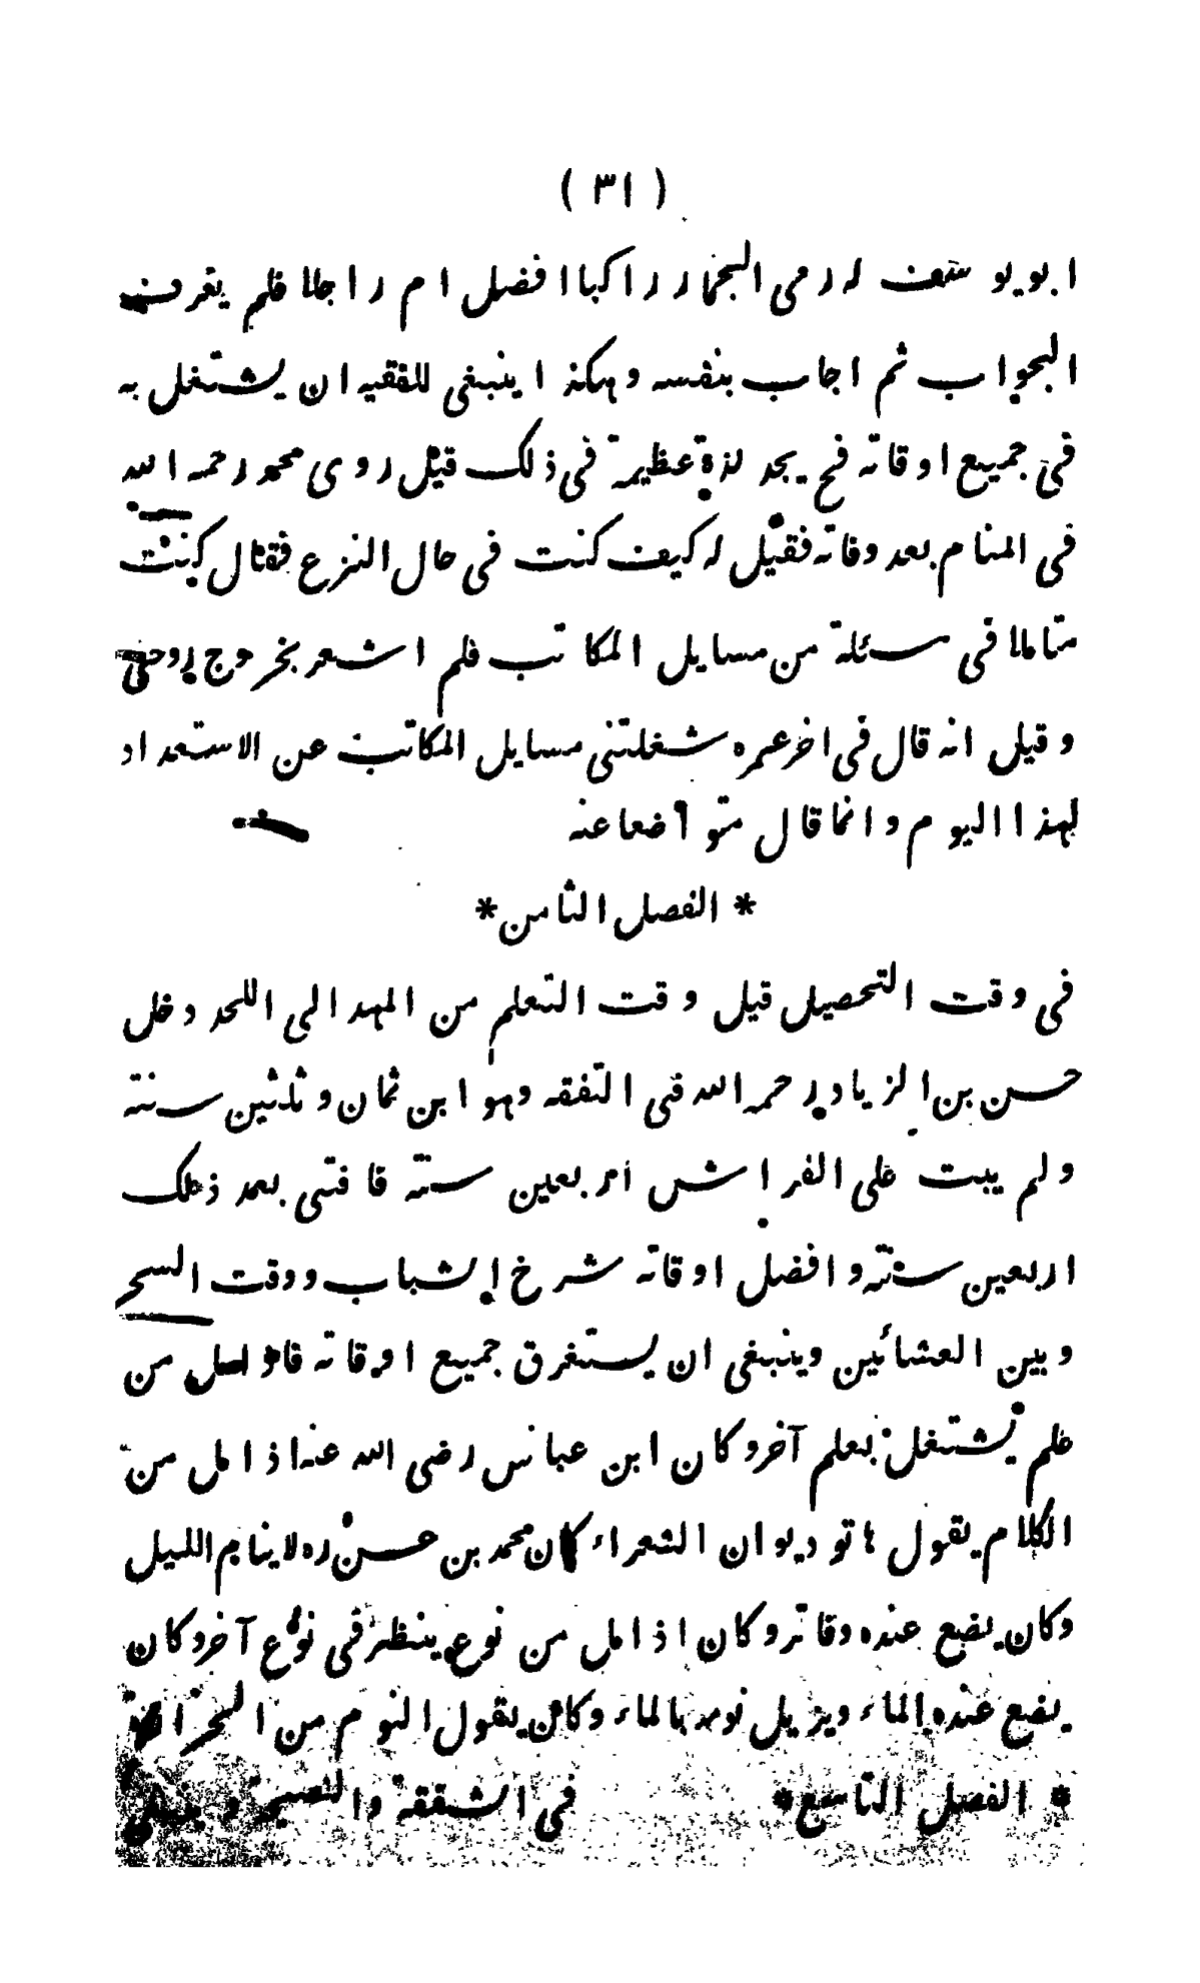 ( ٣١ )
ابو يوسف له رمى الجمار راكبا افضل ام راجلا فلم يعرف
الجواب ثم اجاب بنفسه وهكذا ينبغى للفقيه ان يشتغل به
فى جميع اوقاته فح يجد لذة عظيمة فى ذلك قيل روى محمد رحمه الله
فى المنام بعد وفاته فقيل له كيف كنت فى حال النزع فقال كنت
متاملا فى سئلة من مسايل المكاتب فلم اشعر بخروج روحى
وقيل انه قال فى اخر عمره شغلتنى مسايل المكاتب عن الاستعداد
لهذا اليوم وانما قال متواضعا عنه
* الفصل الثامن *
فى وقت التحصيل قيل وقت التعلم من المهد الى اللحد دخل
حسن بن الزياد رحمه الله فى التفقه وهو ابن ثمان وثلثين سنة
ولم يبت على الفراش اربعين سنة فافتى بعد ذلك
اربعين سنة وافضل اوقاته شرخ الشباب ووقت السحر
وبين العشائين وينبغى ان يستغرق جميع اوقاته فاذا مل من
علم يشتغل بعلم آخر وكان ابن عباس رضى الله عنه اذا مل من
الكلام يقول هاتو ديوان الشعراء كان محمد بن حسن ره لا ينام الليل
وكان يضع عنده دفاتر وكان اذا مل من نوع ينظر فى نوع آخر وكان
يضع عنده الماء ويزيل نومه بالماء وكان يقول النوم من الحرارة
* الفصل التاسع * فى الشفقة والنصيحة وينبغى